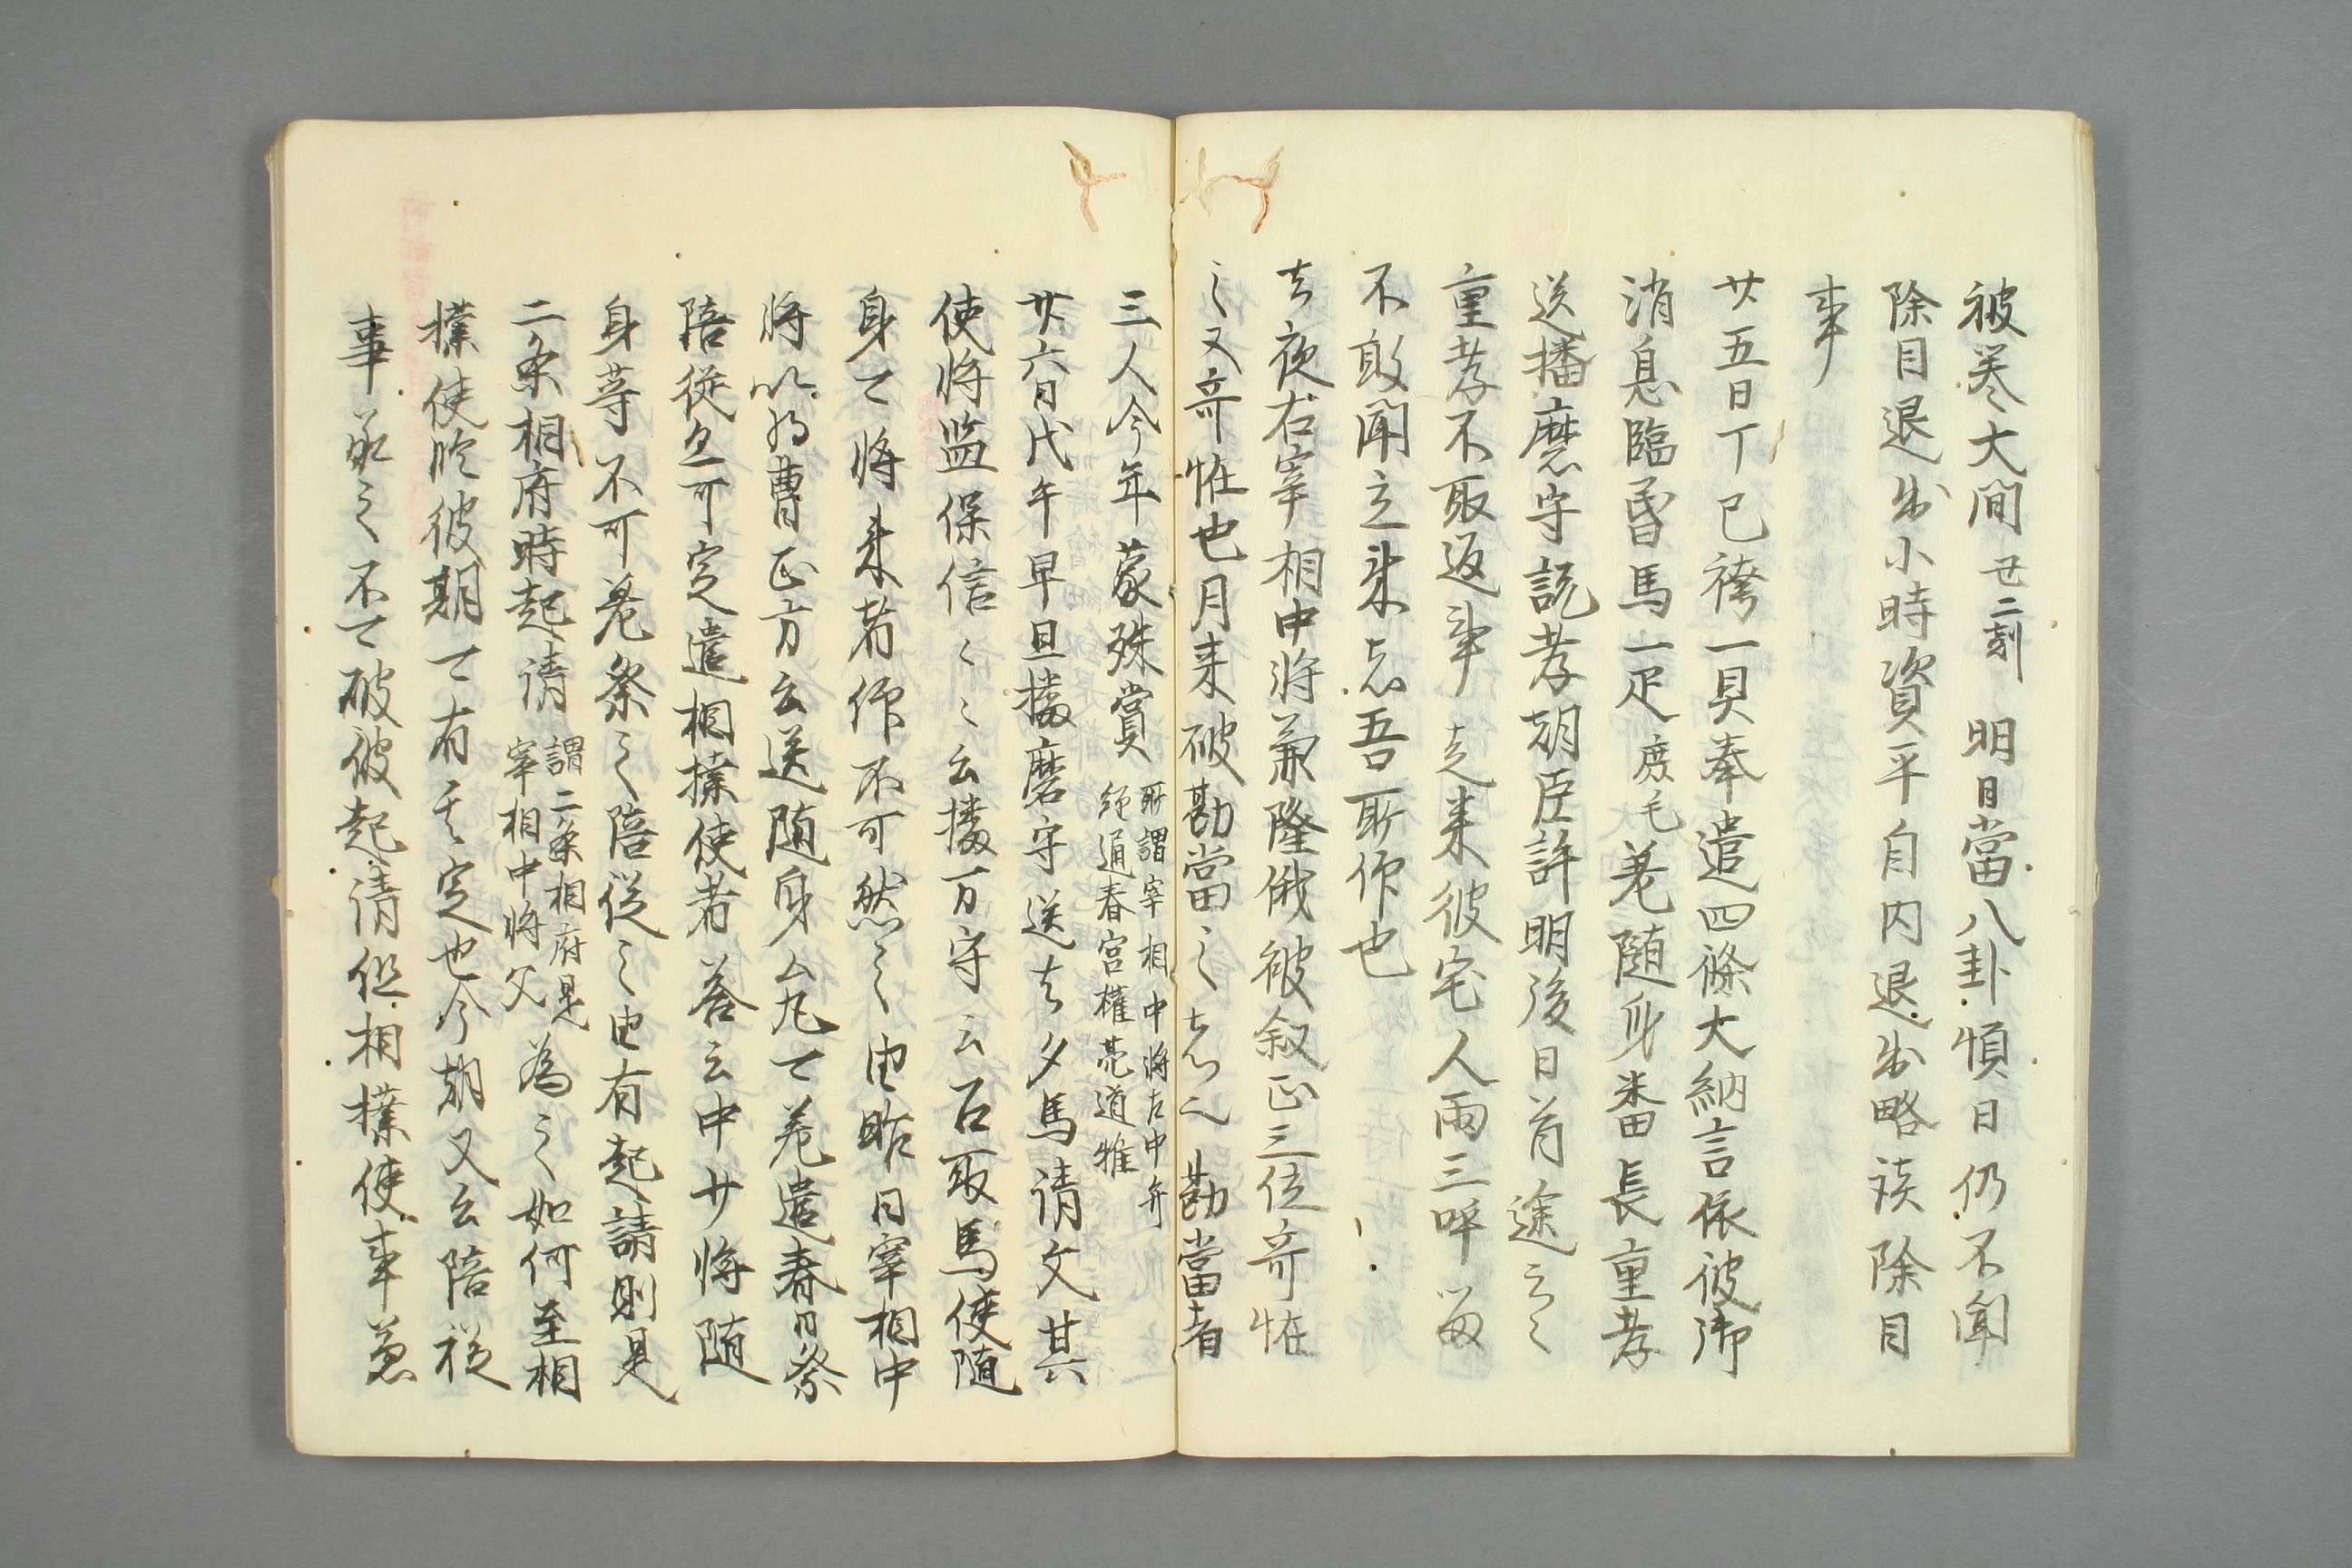 被奏大間丑二刻明日當八卦慎日仍不聞
除目退出小時資平自内退出略談除目
事
廿五日丁巳袴一具奉遣四條大納言依彼御
消息臨昏馬一疋鹿毛差随身番長重孝
送播磨守説孝朝臣許明後日首途云々
重孝不取返事走来彼宅人両三呼留
不敢聞立来志吾所作也
去夜右宰相中将兼隆俄被叙正三位奇恠
之又奇恠也月来被勘當之 勘當者
三人今年蒙殊賞
所謂宰相中将左中弁
経通春宮権亮道雅
廿六日戊午早旦播磨守送去夕馬请文其
使将监保信々々云播万守云召取馬使随
身了将来者作不可然之由昨日宰相中
将以为曹正方云送随身厶丸了差遣春日祭
陪従 可定遣相撲使者答云中少将随
身等不可差祭之陪従之由有起請則是
二条相府時起请
謂二条相府是
宰相中将父
為之如何至相
撲使 彼期了有 定也今朝又云陪従
事承之不了破彼起请但相撲使事